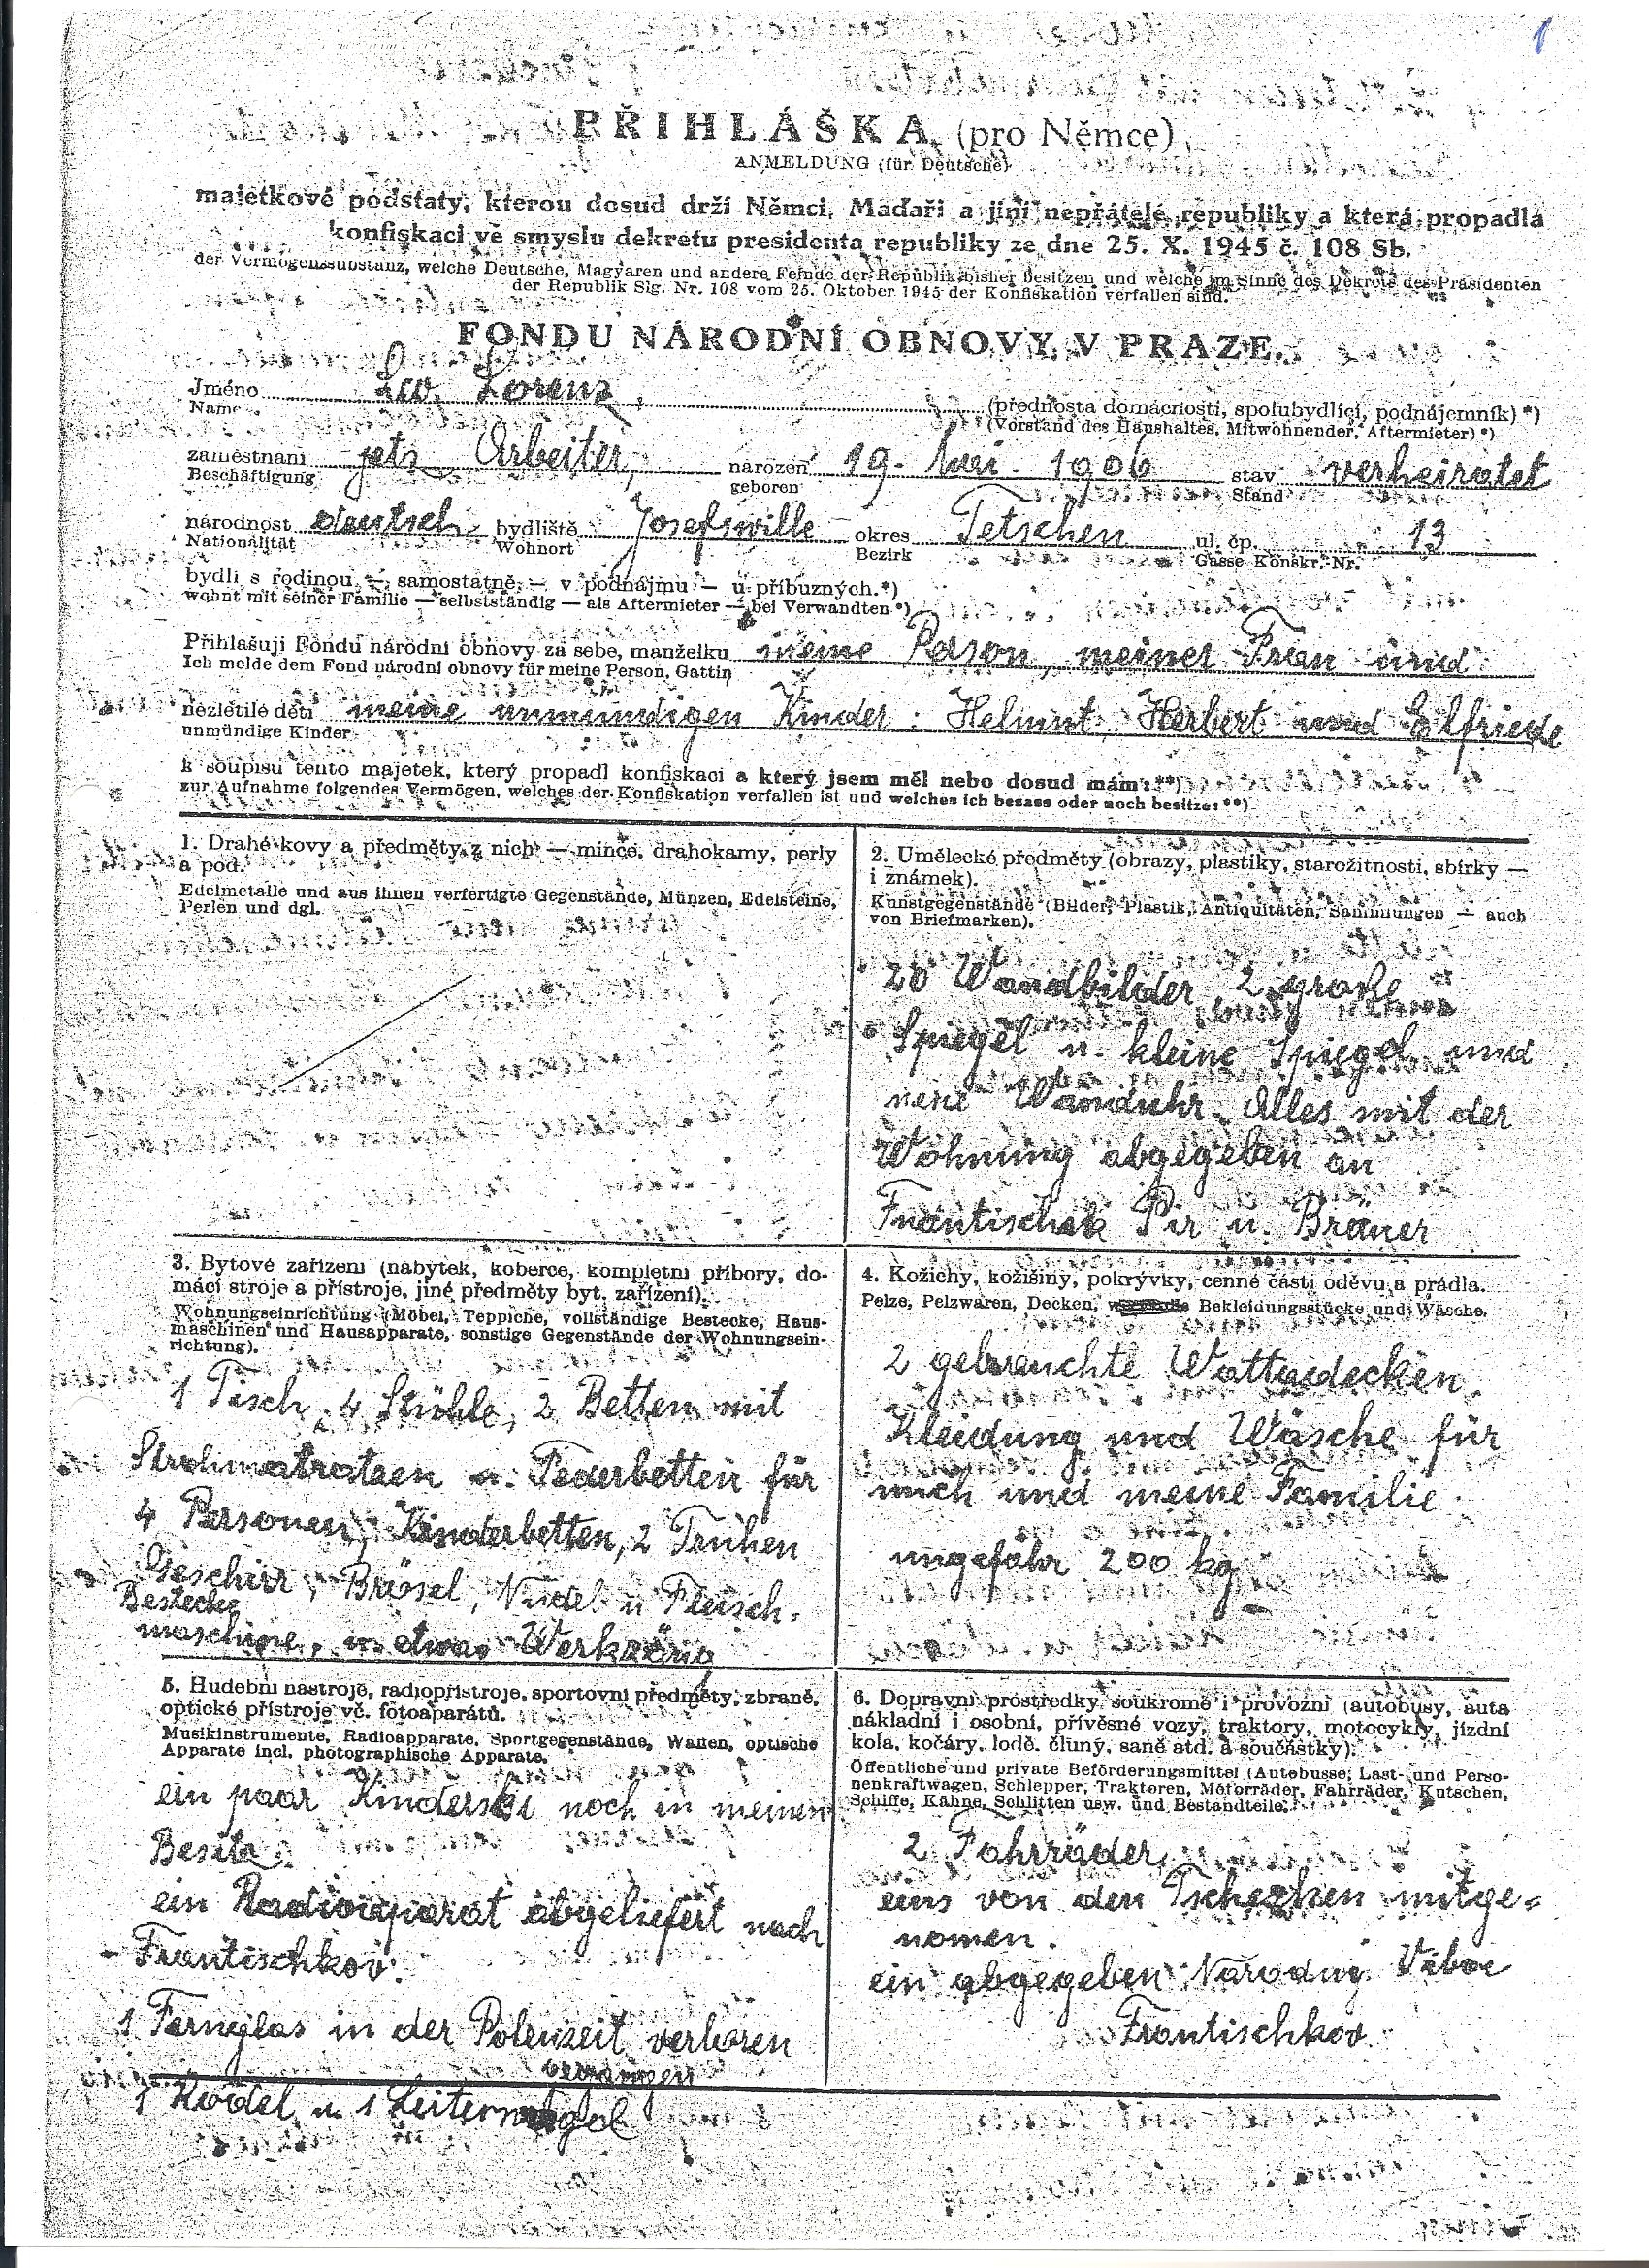 1
PŘIHLÁŠKA (pro Němce)
ANMELDUNG (für Deutsche)
majetkové podstaty, kterou dosud drží Němci, Maďaři a jiní nepřátelé republiky a která propadla
konfiskaci ve smyslu dekretu presidenta republiky ze dne 25. X. 1945 č. 108 Sb.
der Vermögenssubstanz, welche Deutsche, Magyaren und andere Feinde der Republik bisher besitzen und welche im Sinne des Dekrets des Präsidenten
der Republik Slg. Nr. 108 vom 25. Oktober 1945 der Konfiskation verfallen sind.
FONDU NÁRODNÍ OBNOVY V PRAZE.
Jméno Leo. Lorenz, (přednosta domácnosti, spolubydlící, podnájemník) *)
Name (Vorstand des Haushaltes, Mitwohnender, Aftermieter) *)
zaměstnání jetz Arbeiter, narozen 19. Mai. 1906 stav verheiratet
Beschäftigung geboren Stand
národnost deutsch bydliště Josefswille okres Tetschen ul. čp. 13
Nationalität Wohnort Bezirk Gasse Konskr.-Nr.
bydlí s rodinou — samostatně — v podnájmu — u příbuzných.*)
wohnt mit seiner Familie — selbstständig — als Aftermieter — bei Verwandten *)
Přihlašuji Fondu národní obnovy za sebe, manželku meine Person, meiner Frau und
Ich melde dem Fond národní obnovy für meine Person, Gattin
nezletilé děti meine unmündigen Kinder: Helmut, Herbert und Elfriede
unmündige Kinder
k soupisu tento majetek, který propadl konfiskaci a který jsem měl nebo dosud mám: **)
zur Aufnahme folgendes Vermögen, welches der Konfiskation verfallen ist und welches ich besass oder noch besitze: **)
1. Drahé kovy a předměty z nich — mince, drahokamy, perly
a pod.
Edelmetalle und aus ihnen verfertigte Gegenstände, Münzen, Edelsteine,
Perlen und dgl.
2. Umělecké předměty (obrazy, plastiky, starožitnosti, sbírky —
i známek).
Kunstgegenstände (Bilder, Plastik, Antiquitäten, Sammlungen — auch
von Briefmarken).
20 Wandbilder, 2 große
Spiegel u. kleine Spiegel und
neue Wanduhr. Alles mit der
Wohnung abgegeben an
Frantischek Pir u. Bräuer
3. Bytové zařízení (nábytek, koberce, kompletní příbory, do-
mácí stroje a přístroje, jiné předměty byt. zařízení).
Wohnungseinrichtung (Möbel, Teppiche, vollständige Bestecke, Haus-
maschinen und Hausapparate, sonstige Gegenstände der Wohnungsein-
richtung).
1 Tisch, 4 Stühle, 2 Betten mit
Strohmatratzen u. Federbetten für
4 Personen, Kinderbetten, 2 Truhen
Geschirr, Brösel, Nudel u Fleisch-
Bestecke
maschine, u. etwas Werkzäug
4. Kožichy, kožišiny, pokrývky, cenné části oděvu a prádla.
Pelze, Pelzwaren, Decken, Bekleidungsstücke und Wäsche.
2 gebrauchte Wattedecken.
Kleidung und Wäsche für
mich und meine Familie
ungefähr 200 kg
5. Hudební nástroje, radiopřístroje, sportovní předměty, zbraně,
optické přístroje vč. fotoaparátů.
Musikinstrumente, Radioapparate, Sportgegenstände, Waffen, optische
Apparate incl. photographische Apparate.
ein paar Kinderski noch in meinen
Besitz.
ein Radioaparat abgeliefert nach
Frantischkov.
1 Fernglas in der Polenzeit verloren
gegangen
1 Rodel u 1 Leiterwagerl
6. Dopravní prostředky soukromé i provozní (autobusy, auta
nákladní i osobní, přívěsné vozy, traktory, motocykly, jízdní
kola, kočáry, lodě, čluny, saně atd. a součástky).
Öffentliche und private Beförderungsmittel (Autobusse, Last- und Perso-
nenkraftwagen, Schlepper, Traktoren, Motorräder, Fahrräder, Kutschen,
Schiffe, Kähne, Schlitten usw. und Bestandteile.
2 Fahrräder,
eins von den Tschechen mitge=
nomen.
ein abgegeben Narodni Vibor
Frantischkov.